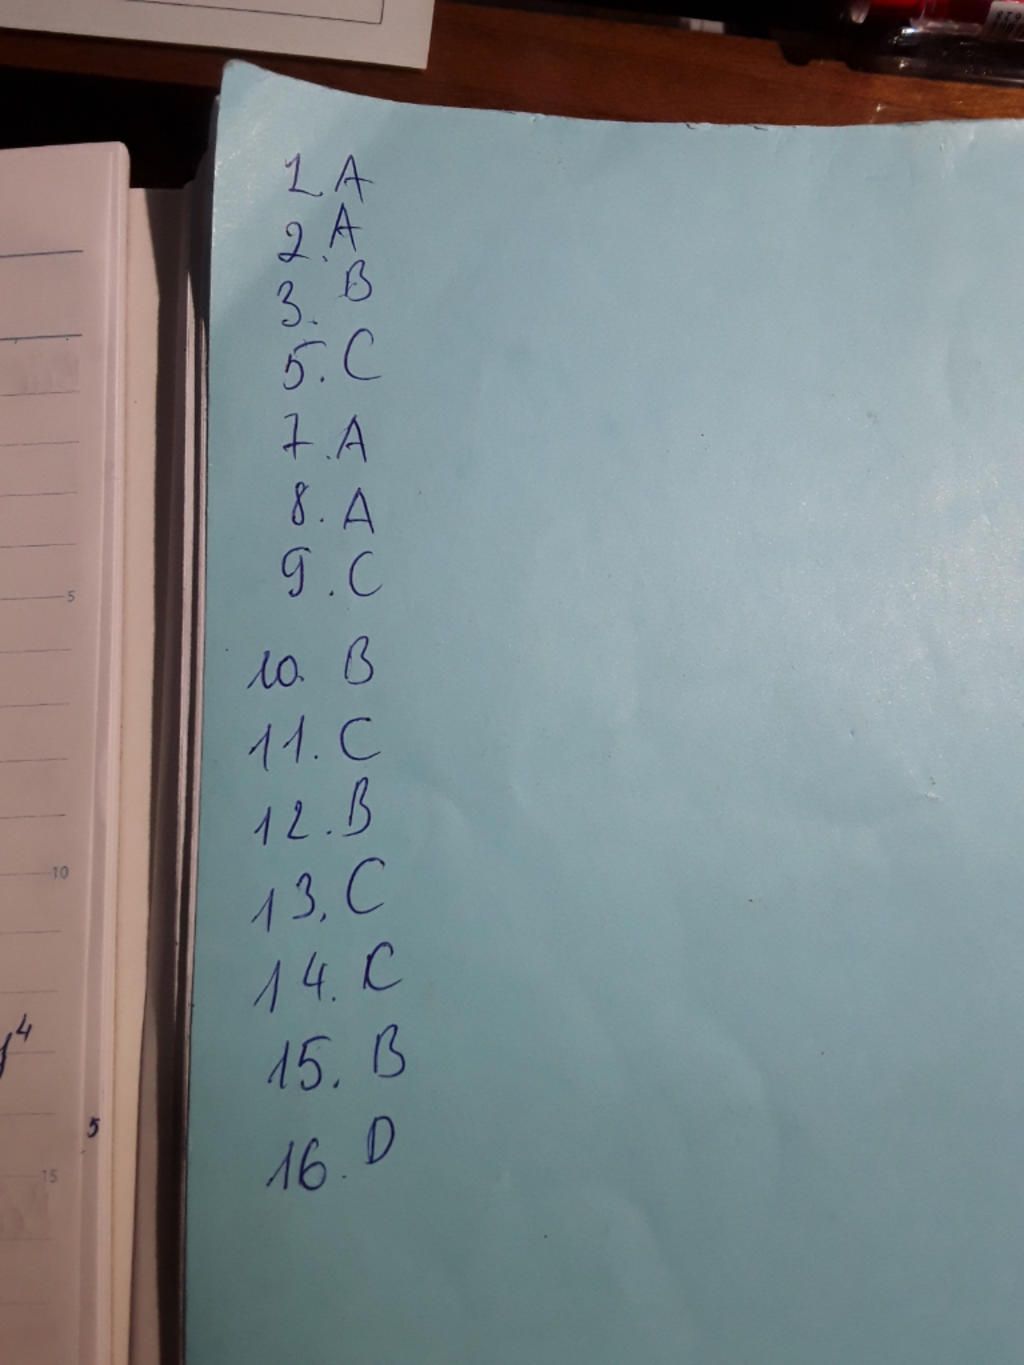 1. A
2. A
3. B
5. C
7. A
8. A
9. C
10. B
11. C
12. B
13. C
14. C
15. B
16. D
5
10
4
5
15